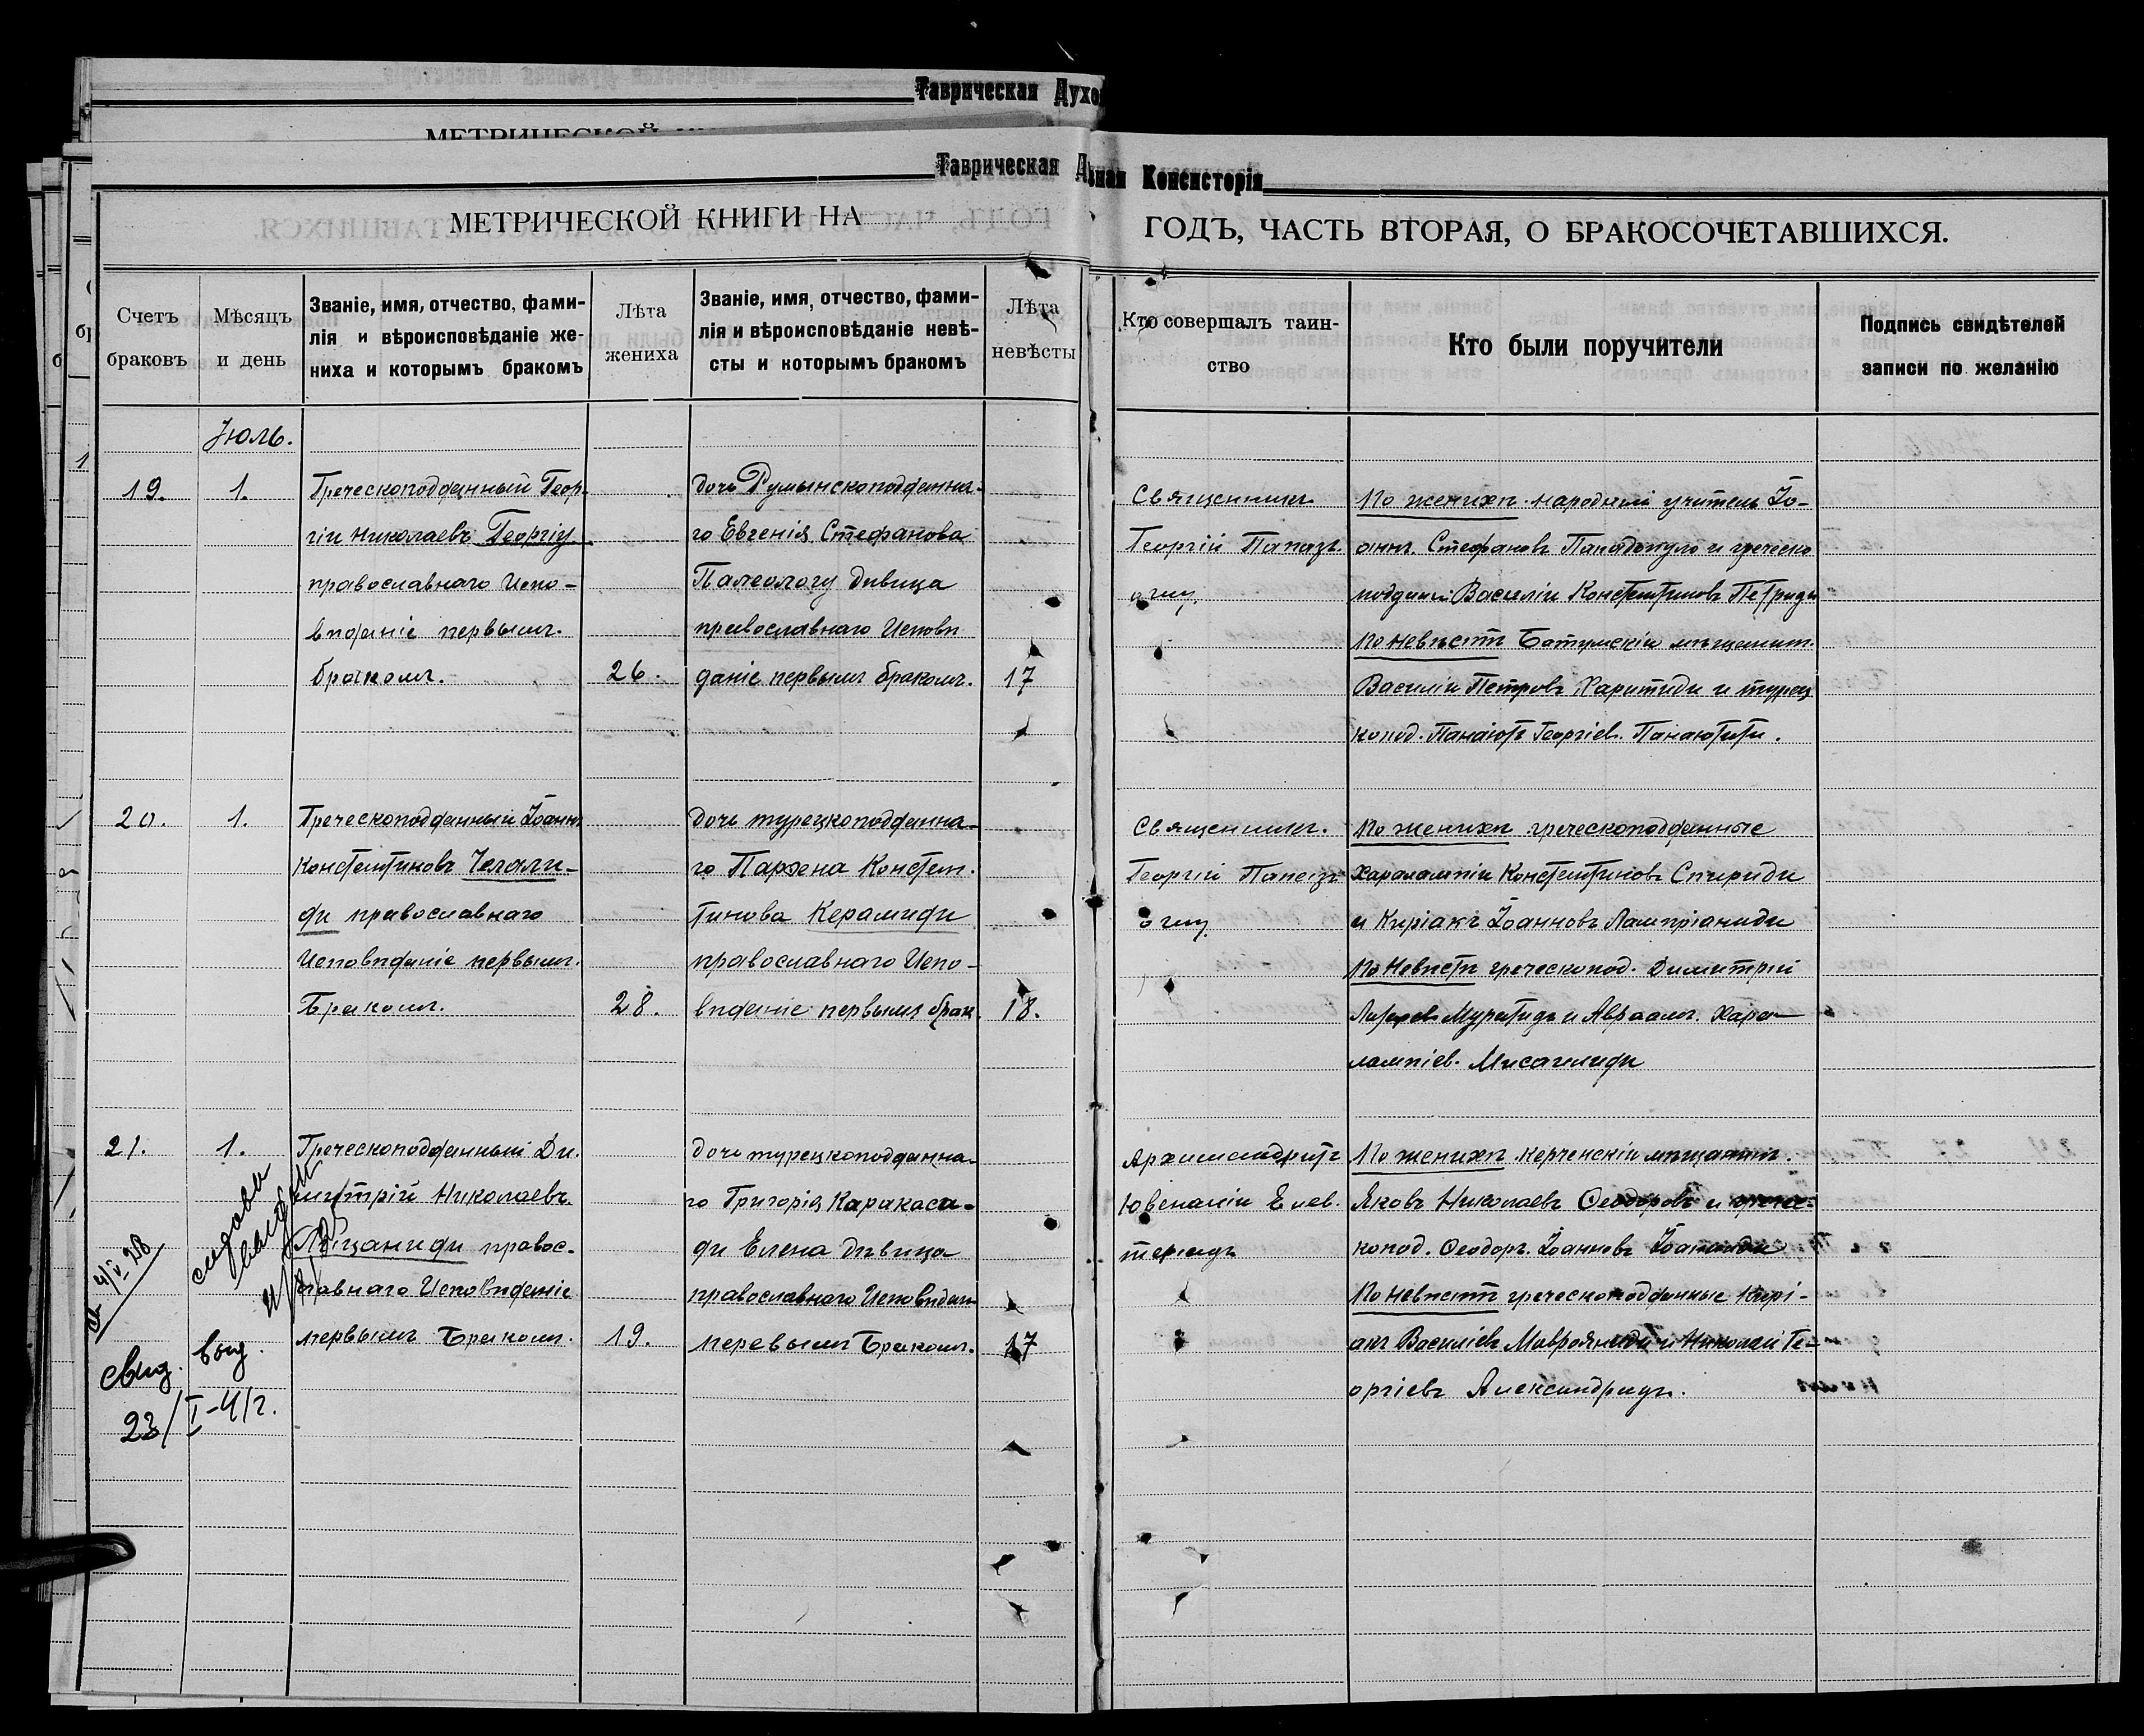 Таврическая Духо
Таврическая Д
вная Консисторія
МЕТРИЧЕСКОЙ КНИГИ НА
ГОДЪ, ЧАСТЬ ВТОРАЯ, О БРАКОСОЧЕТАВШИХСЯ.
Счетъ браковъ
Мѣсяцъ и день
Званіе, имя, отчество, фами-
лія и вѣроисповѣданіе же-
ниха и которымъ бракомъ
Лѣта жениха
Званіе, имя, отчество, фами-
лія и вѣроисповѣданіе невѣ-
сты и которымъ бракомъ
Лѣта невѣсты
Кто совершалъ таин-
ство
Кто были поручители
Подпись свидѣтелей
записи по желанію
Іюль.
19.
1.
Греческоподданный Геор-
гій Николаевъ Георгіу
православнаго Испо-
вѣданіе первымъ
бракомъ.
26.
дочь Румынскоподданна-
го Евгенія Стефанова
Палеологу дѣвица
православнаго Исповѣ
даніе первымъ бракомъ.
17
Священникъ
Георгій Папаз-
оглу
По женихѣ народный учитель Іо-
аннъ Стефановъ Пападопуло и греческо
подданый Василій Константиновъ Петриди
По невѣстѣ Батумскій мѣщанинъ
Василій Петровъ Харитиди и турец
копод. Панаіотъ Георгіев. Панаютити.
20.
1.
Греческоподданный Іоаннъ
Константиновъ Челали-
ди православнаго
Исповѣданіе первымъ
Бракомъ.
28.
дочь турецкоподданна-
го Пархена Констан-
тинова Керамиди
православнаго Испо-
вѣданіе первымъ брак
18.
Священникъ
Георгій Папаз-
оглу
По женихѣ греческоподданные
Харалампій Константиновъ Спириди
и Киріакъ Іоанновъ Лампріаниди
По Невѣстѣ греческопод. Димитрій
Муратидъ и Авраамъ Хара-
лампіев. Мисаилиди
21.
1.
Греческоподданный Ди-
митрій Николаевъ
православнаго Исповѣданіе
первымъ Бракомъ.
19.
дочь турецкоподданна-
го Григорія Каракаса-
ди Елена дѣвица
православнаго Исповѣдан
перевымъ Бракомъ.
17
Архимандритъ
Ювеналій Елев-
теріадъ
По женихѣ керченскій мѣщанинъ
Яковъ Николаевъ Ѳеодоровъ и грече-
копод. Ѳеодоръ Іоанновъ Іоаниди
По невѣстѣ греческоподданные Кирі-
акъ Василіевъ Маврояниди и Николай Ге-
оргіевъ Александридъ.
свид. выд.
23/I-41г.